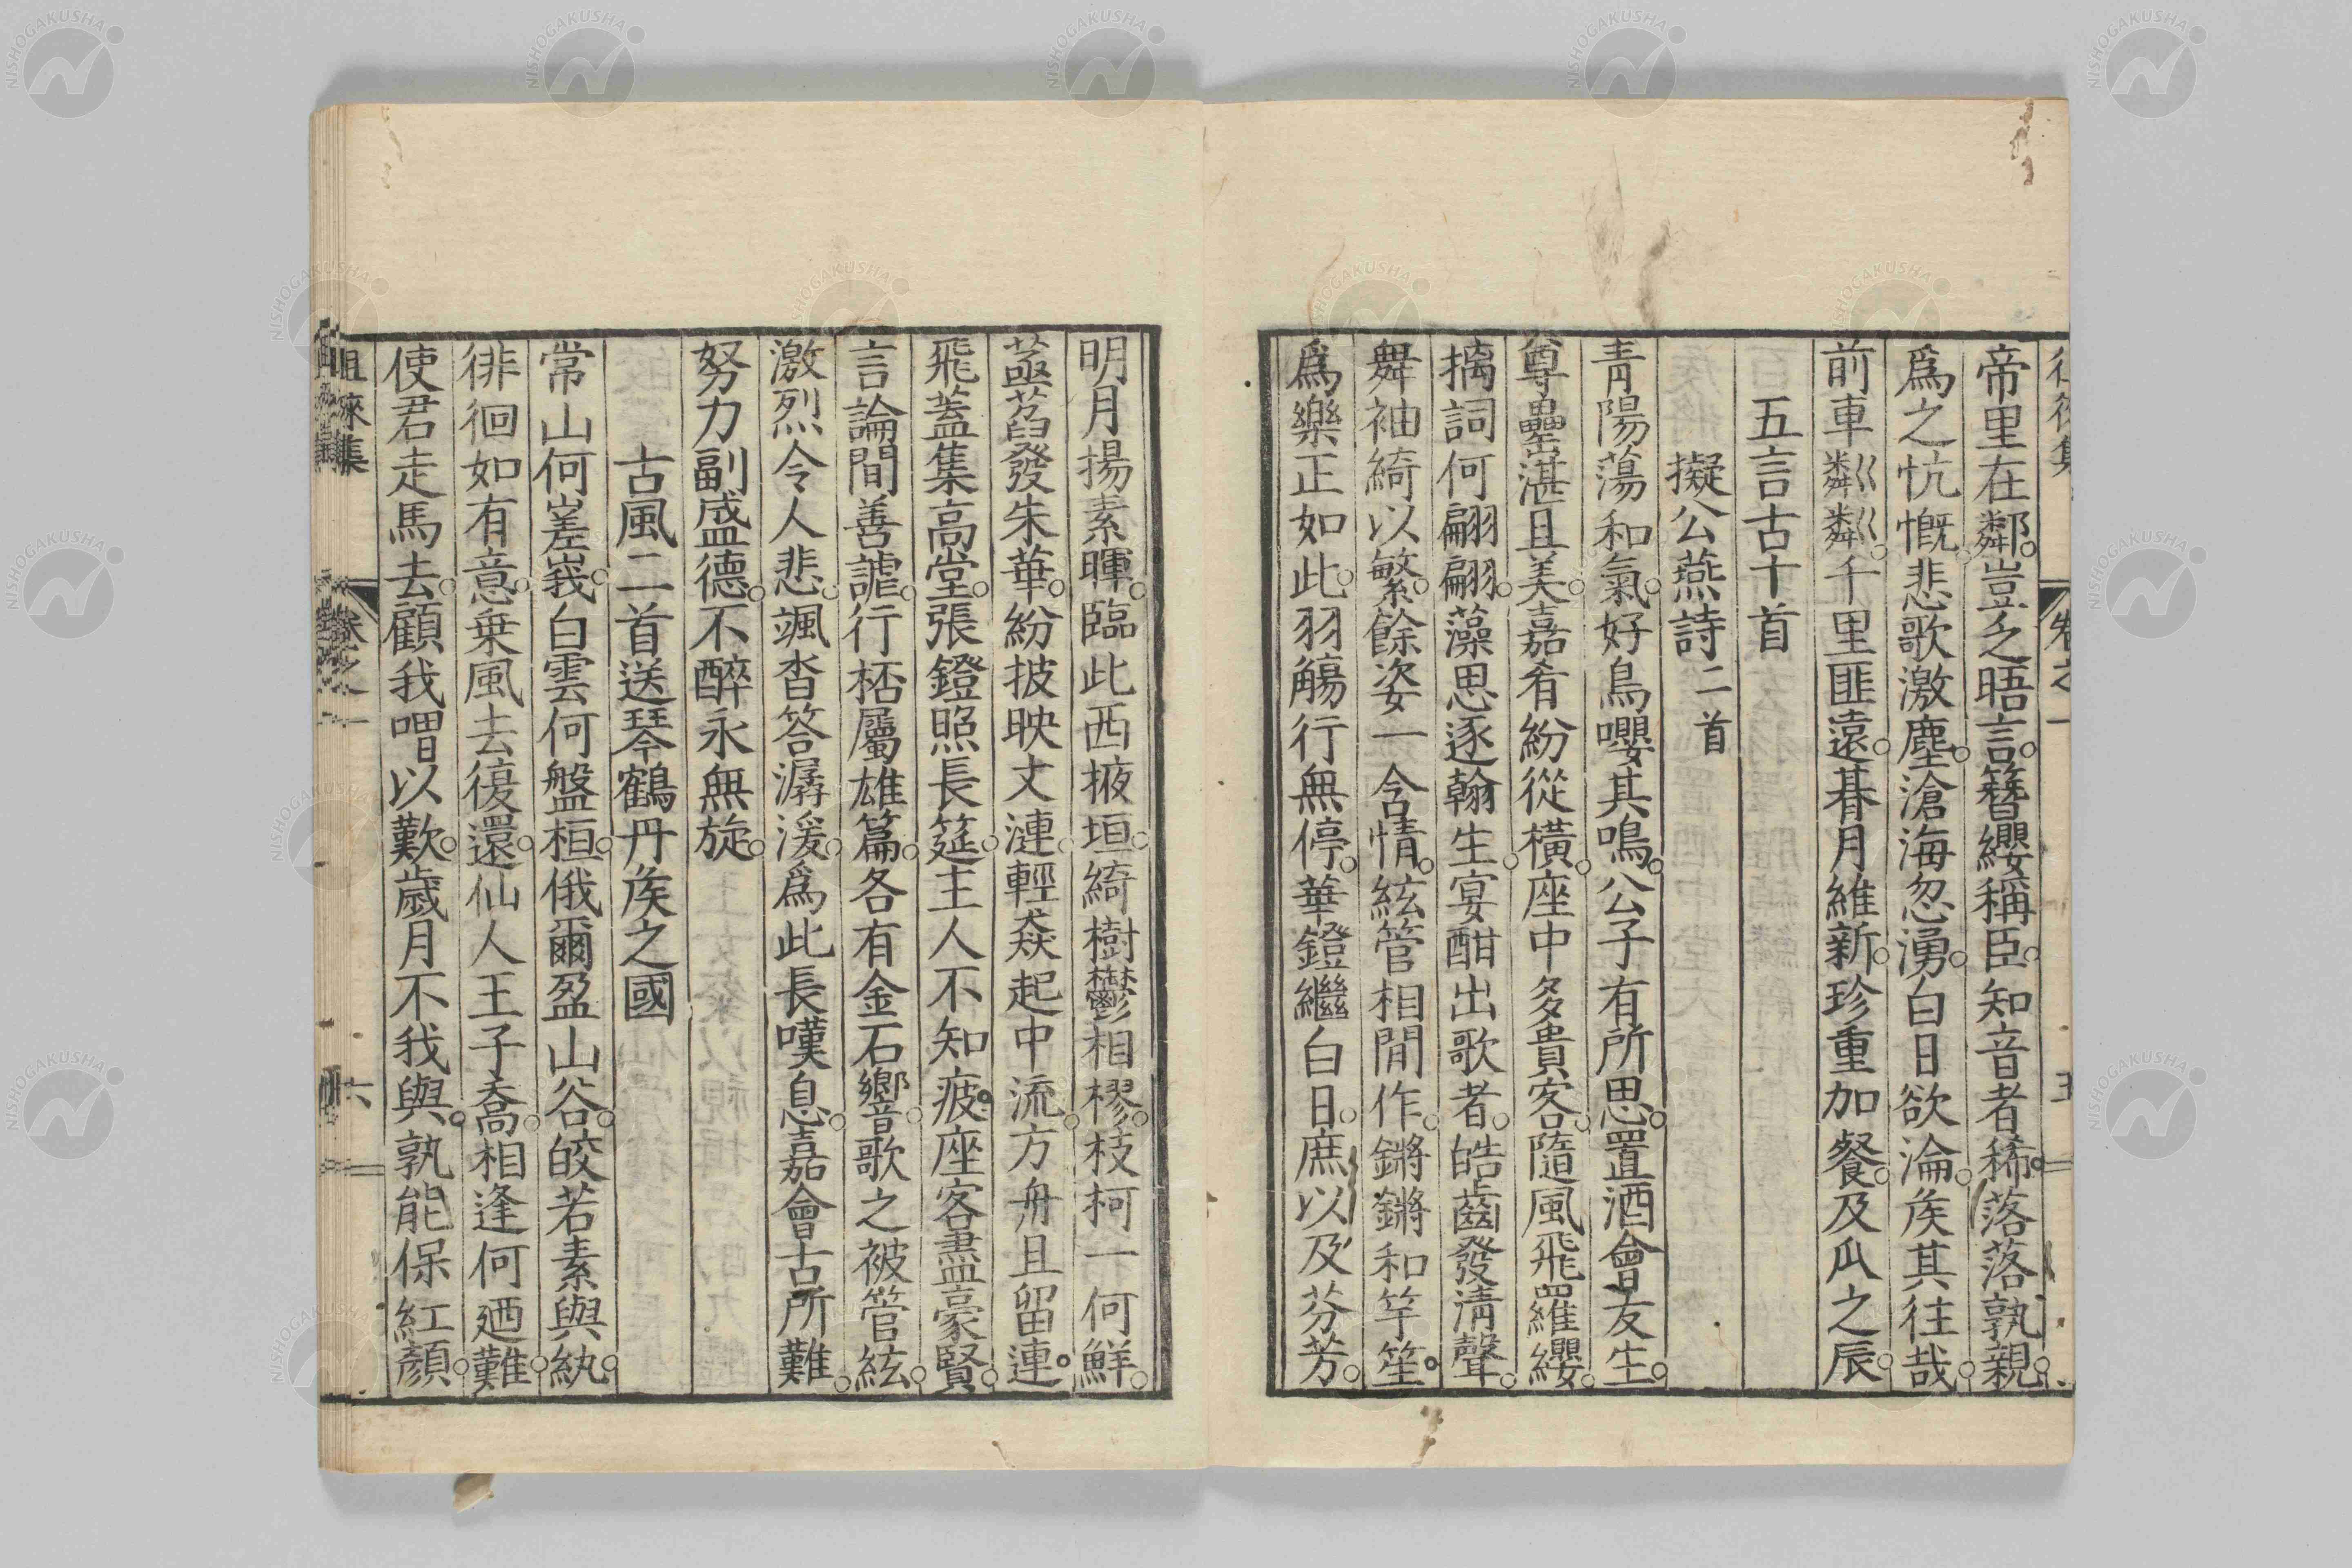 帝里在鄰豈乏晤言簪纓稱臣知音者稀落落孰親
爲之忼慨悲歌激塵滄海忽湧白日欲淪矦其往哉
前車粼粼千里匪遠朞月維新珍重加餐及瓜之辰
五言古十首
擬公燕詩二首
青陽蕩和氣好鳥嚶其鳴公子有所思置酒會友生
尊罍湛且美嘉肴紛從橫座中多貴客隨風飛羅纓
摛詞何翩翩藻思逐翰生宴酣出歌者皓齒發淸聲
舞袖綺以繁餘姿一含情絃管相閒作鏘鏘和竽笙
爲樂正如此羽觴行無停華鐙繼白日庶以及芬芳
明月揚素暉臨此西掖垣綺樹鬱相樛枝柯一何鮮
菡萏發朱華紛披映文漣輕猋起中流方舟且留連
飛蓋集高堂張鐙照長筵主人不知疲座客盡豪賢
言論間善謔行桮屬雄篇各有金石響歌之被管絃
激烈令人悲颯沓答潺湲爲此長嘆息嘉會古所難
努力副盛德不醉永無旋
古風二首送琴鶴丹矦之國
常山何嵳峩白雲何盤桓俄爾盈山谷皎若素與紈
徘徊如有意乗風去復還仙人王子喬相逢何廼難
使君走馬去顧我喟以歎歲月不我與孰能保紅顏
徂徠集
卷之一
六